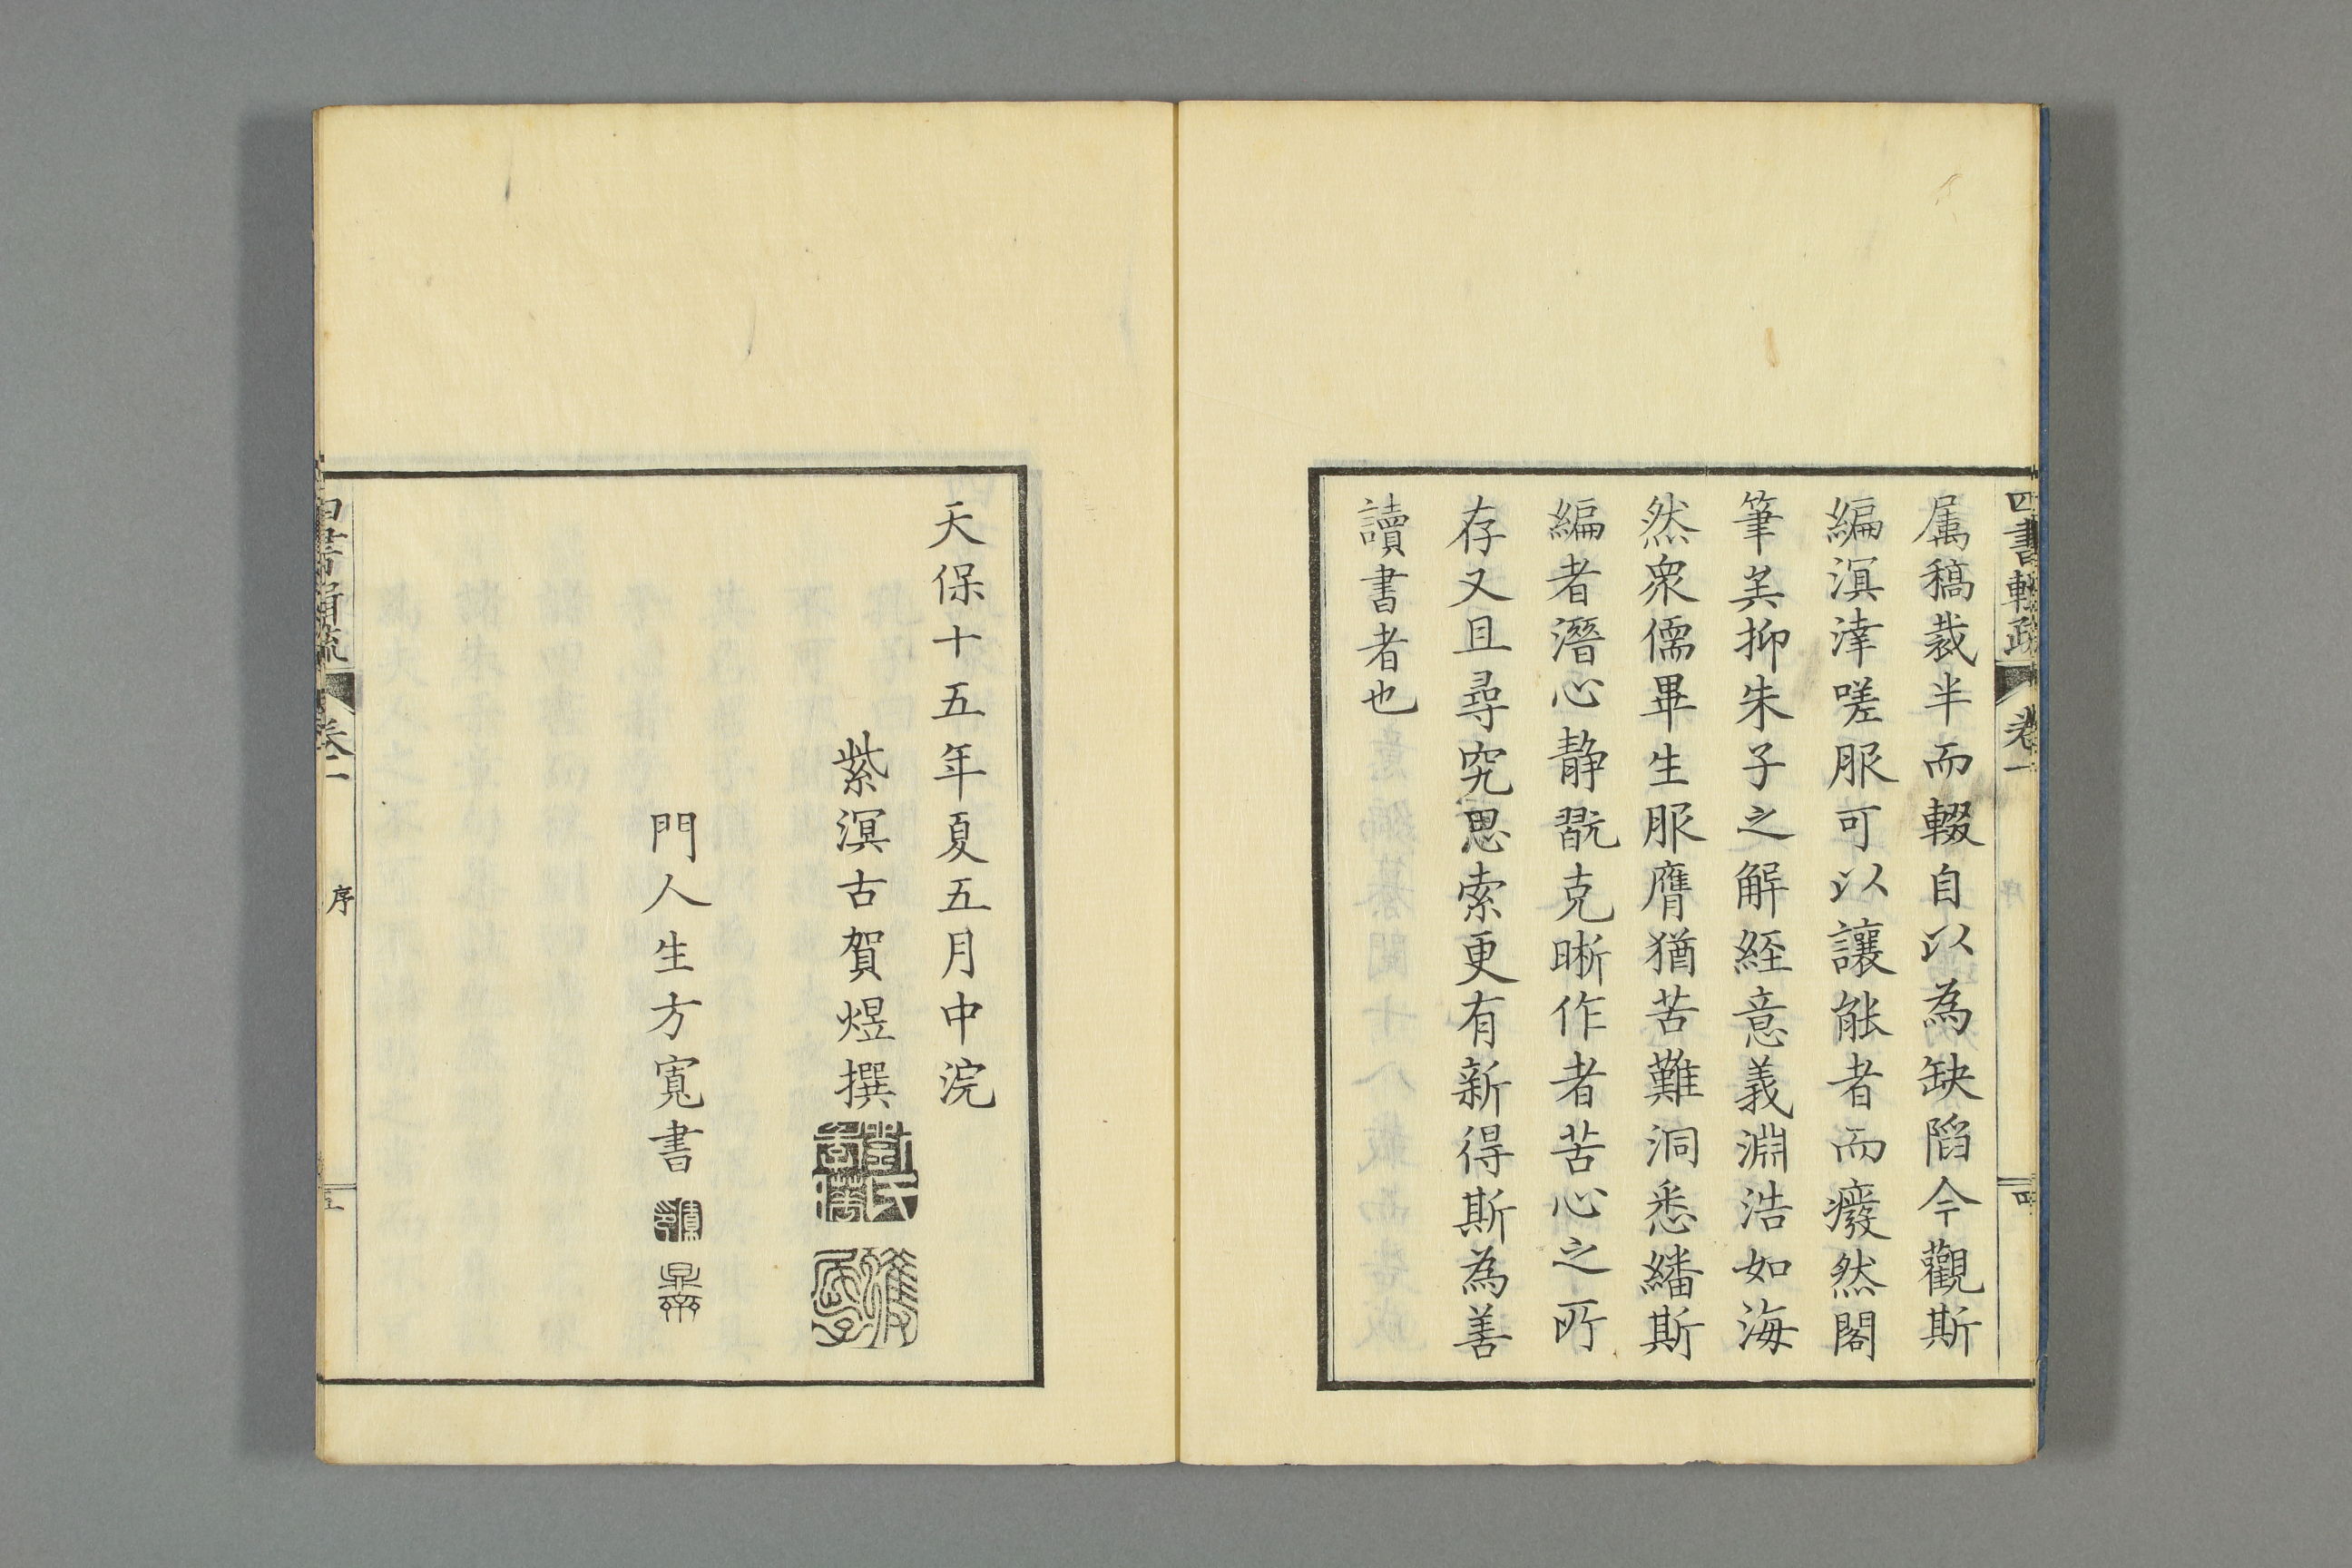 四書輯疏 卷一 四
属稿裁半而輟自以為缺陷今觀斯
編溟涬嗟服可以讓能者而癈然閣
筆矣抑朱子之解經意義淵浩如海
然衆儒畢生服膺猶苦難洞悉繙斯
編者潛心静翫克晰作者苦心之所
存又且尋究思索更有新得斯為善
讀書者也
天保十五年夏五月中浣
紫溟古賀煜撰
門人生方寬書
四書輯疏 卷一 序 五